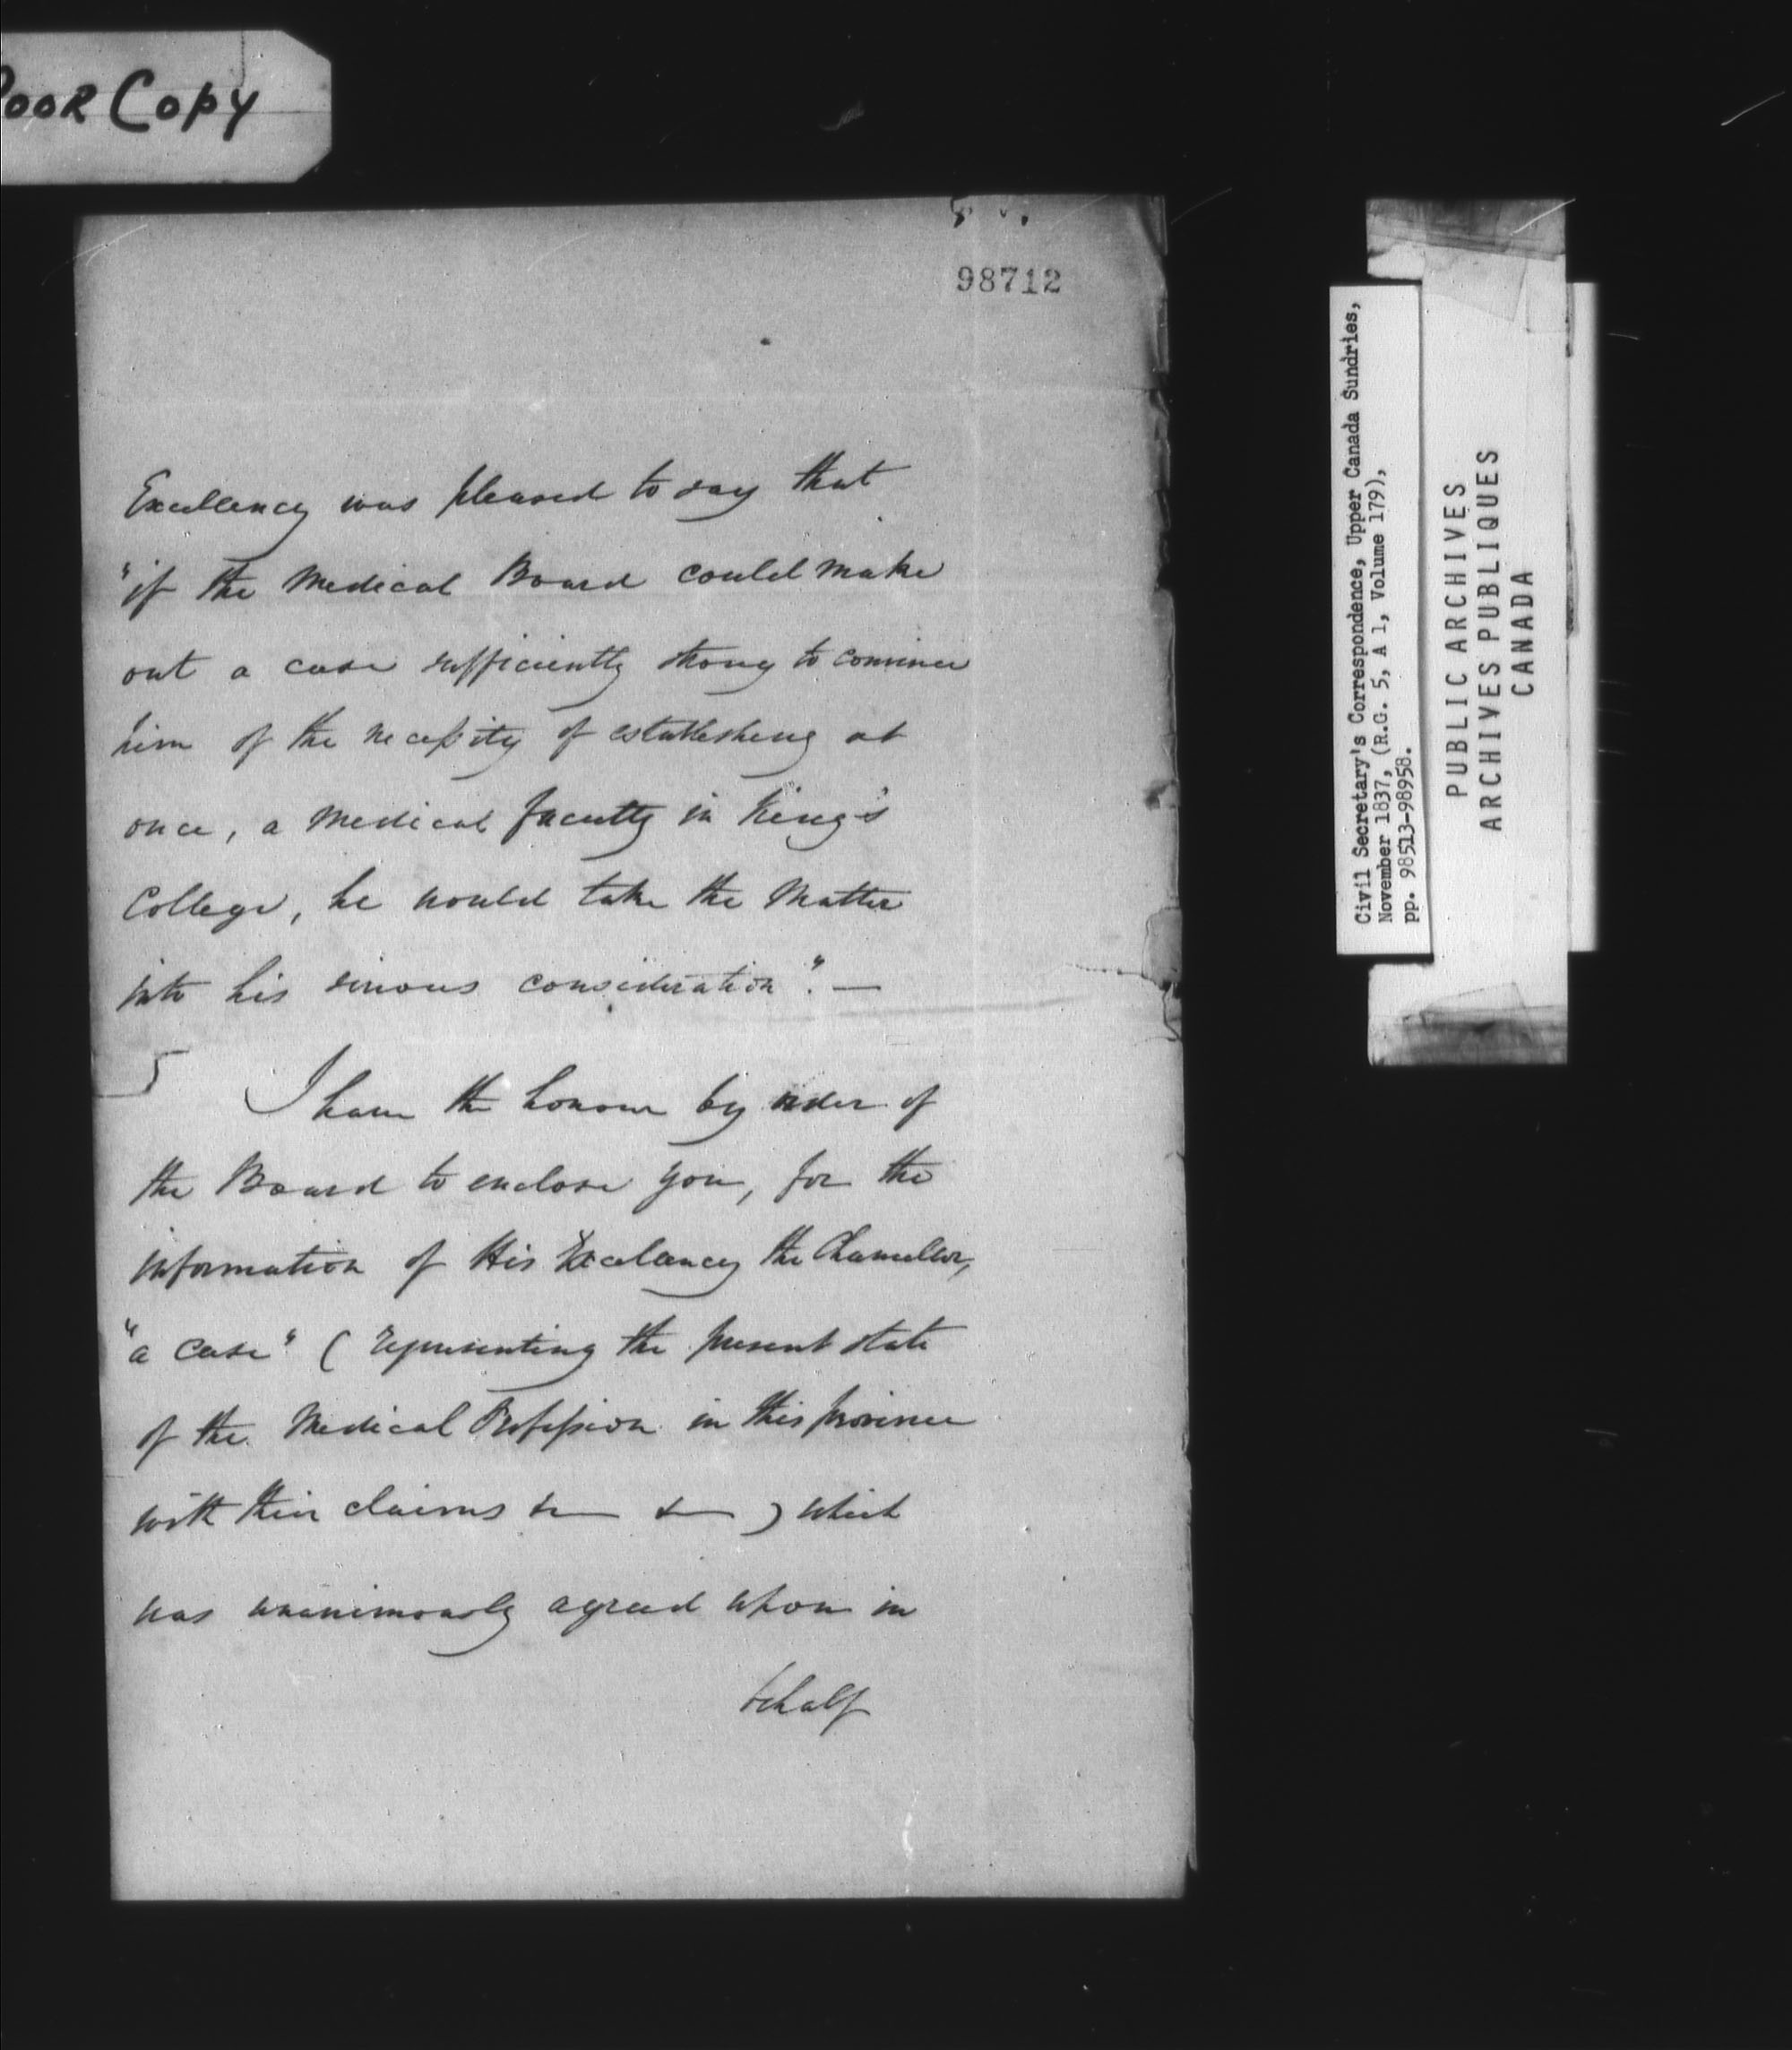 Poor Copy
98712
Excellency was pleased to say that
"if the Medical Board could make
out a case sufficiently strong to convince
him of the necessity of establishing at
once, a Medical faculty in King's
College, he would take the Matter
into his serious consideration". —
I have the honour by order of
the Board to enclose you, for the
information of His Excelency the Chancellor,
"a case" ( representing the present state
of the Medical Profession in this province
with their claims &c — &c — ) which
was unanimously agreed upon in
behalf
Civil Secretary's Correspondence, Upper Canada Sundries,
November 1837, (R.G. 5, A 1, Volume 179),
pp. 98513-98958.
PUBLIC ARCHIVES
ARCHIVES PUBLIQUES
CANADA